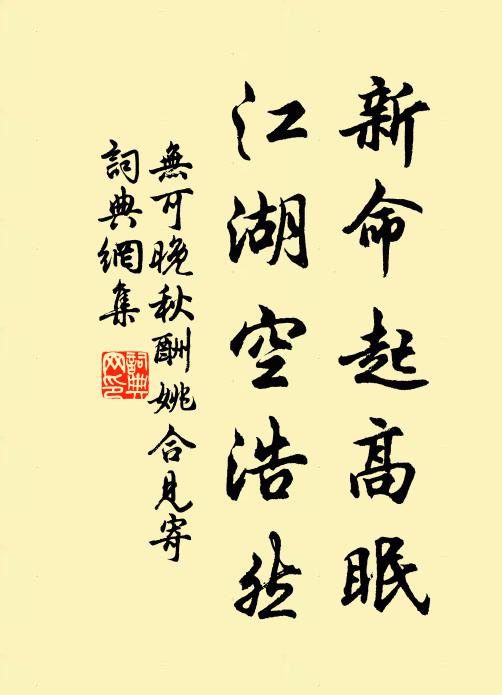 新命起高眠
江湖空浩然
無可晚秋酬姚合見寄
詞典網集
詞典
网印